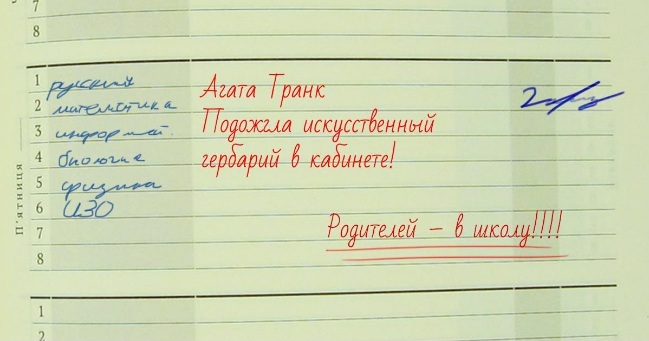 7
8
1 русский
2 математика
3 информат.
4 биология
5 физика
6 ИЗО
7
8
П'ятниця
Агата Транк
Подожгла искусственный
гербарий в кабинете!
Родителей – в школу!!!!
2
1
2